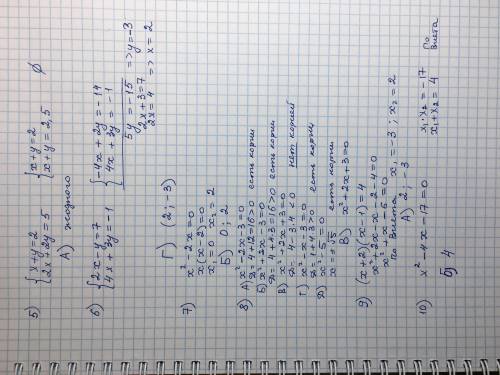 5) { x+y=2 { x+y=2
2x+2y=5 x+y=2,5 ∅
А) жодного
6) { 2x-y=7 { -4x+2y=-14
4x+3y=-1 4x+3y=-1
5y=-15 => y=-3
2x+3=7
2x=4 => x=2
Г) (2;-3)
7) x²-2x=0
x(x-2)=0
x₁=0 x₂=2
Б) 0; 2
8) А) x²-2x-3=0
D=4+12=16>0 есть корни
Б) x²+2x-3=0
D=4+4·3=16>0 есть корни
В) x²+2x+3=0
D=4-4·3·4<0 нет корней
Г) x²-x-3=0
D=1+4·3>0 есть корни
Д) x²-5=0
x=±√5 есть корни
В) x²+2x+3=0
9) (x+2)(x-1)=4
x²+2x-x-2-4=0
x²+x-6=0
по Виета x₁=-3; x₂=2
А) 2; -3
10) x²-4x-17=0 x₁·x₂=-17 По
x₁+x₂=4 Виета
Б) 4